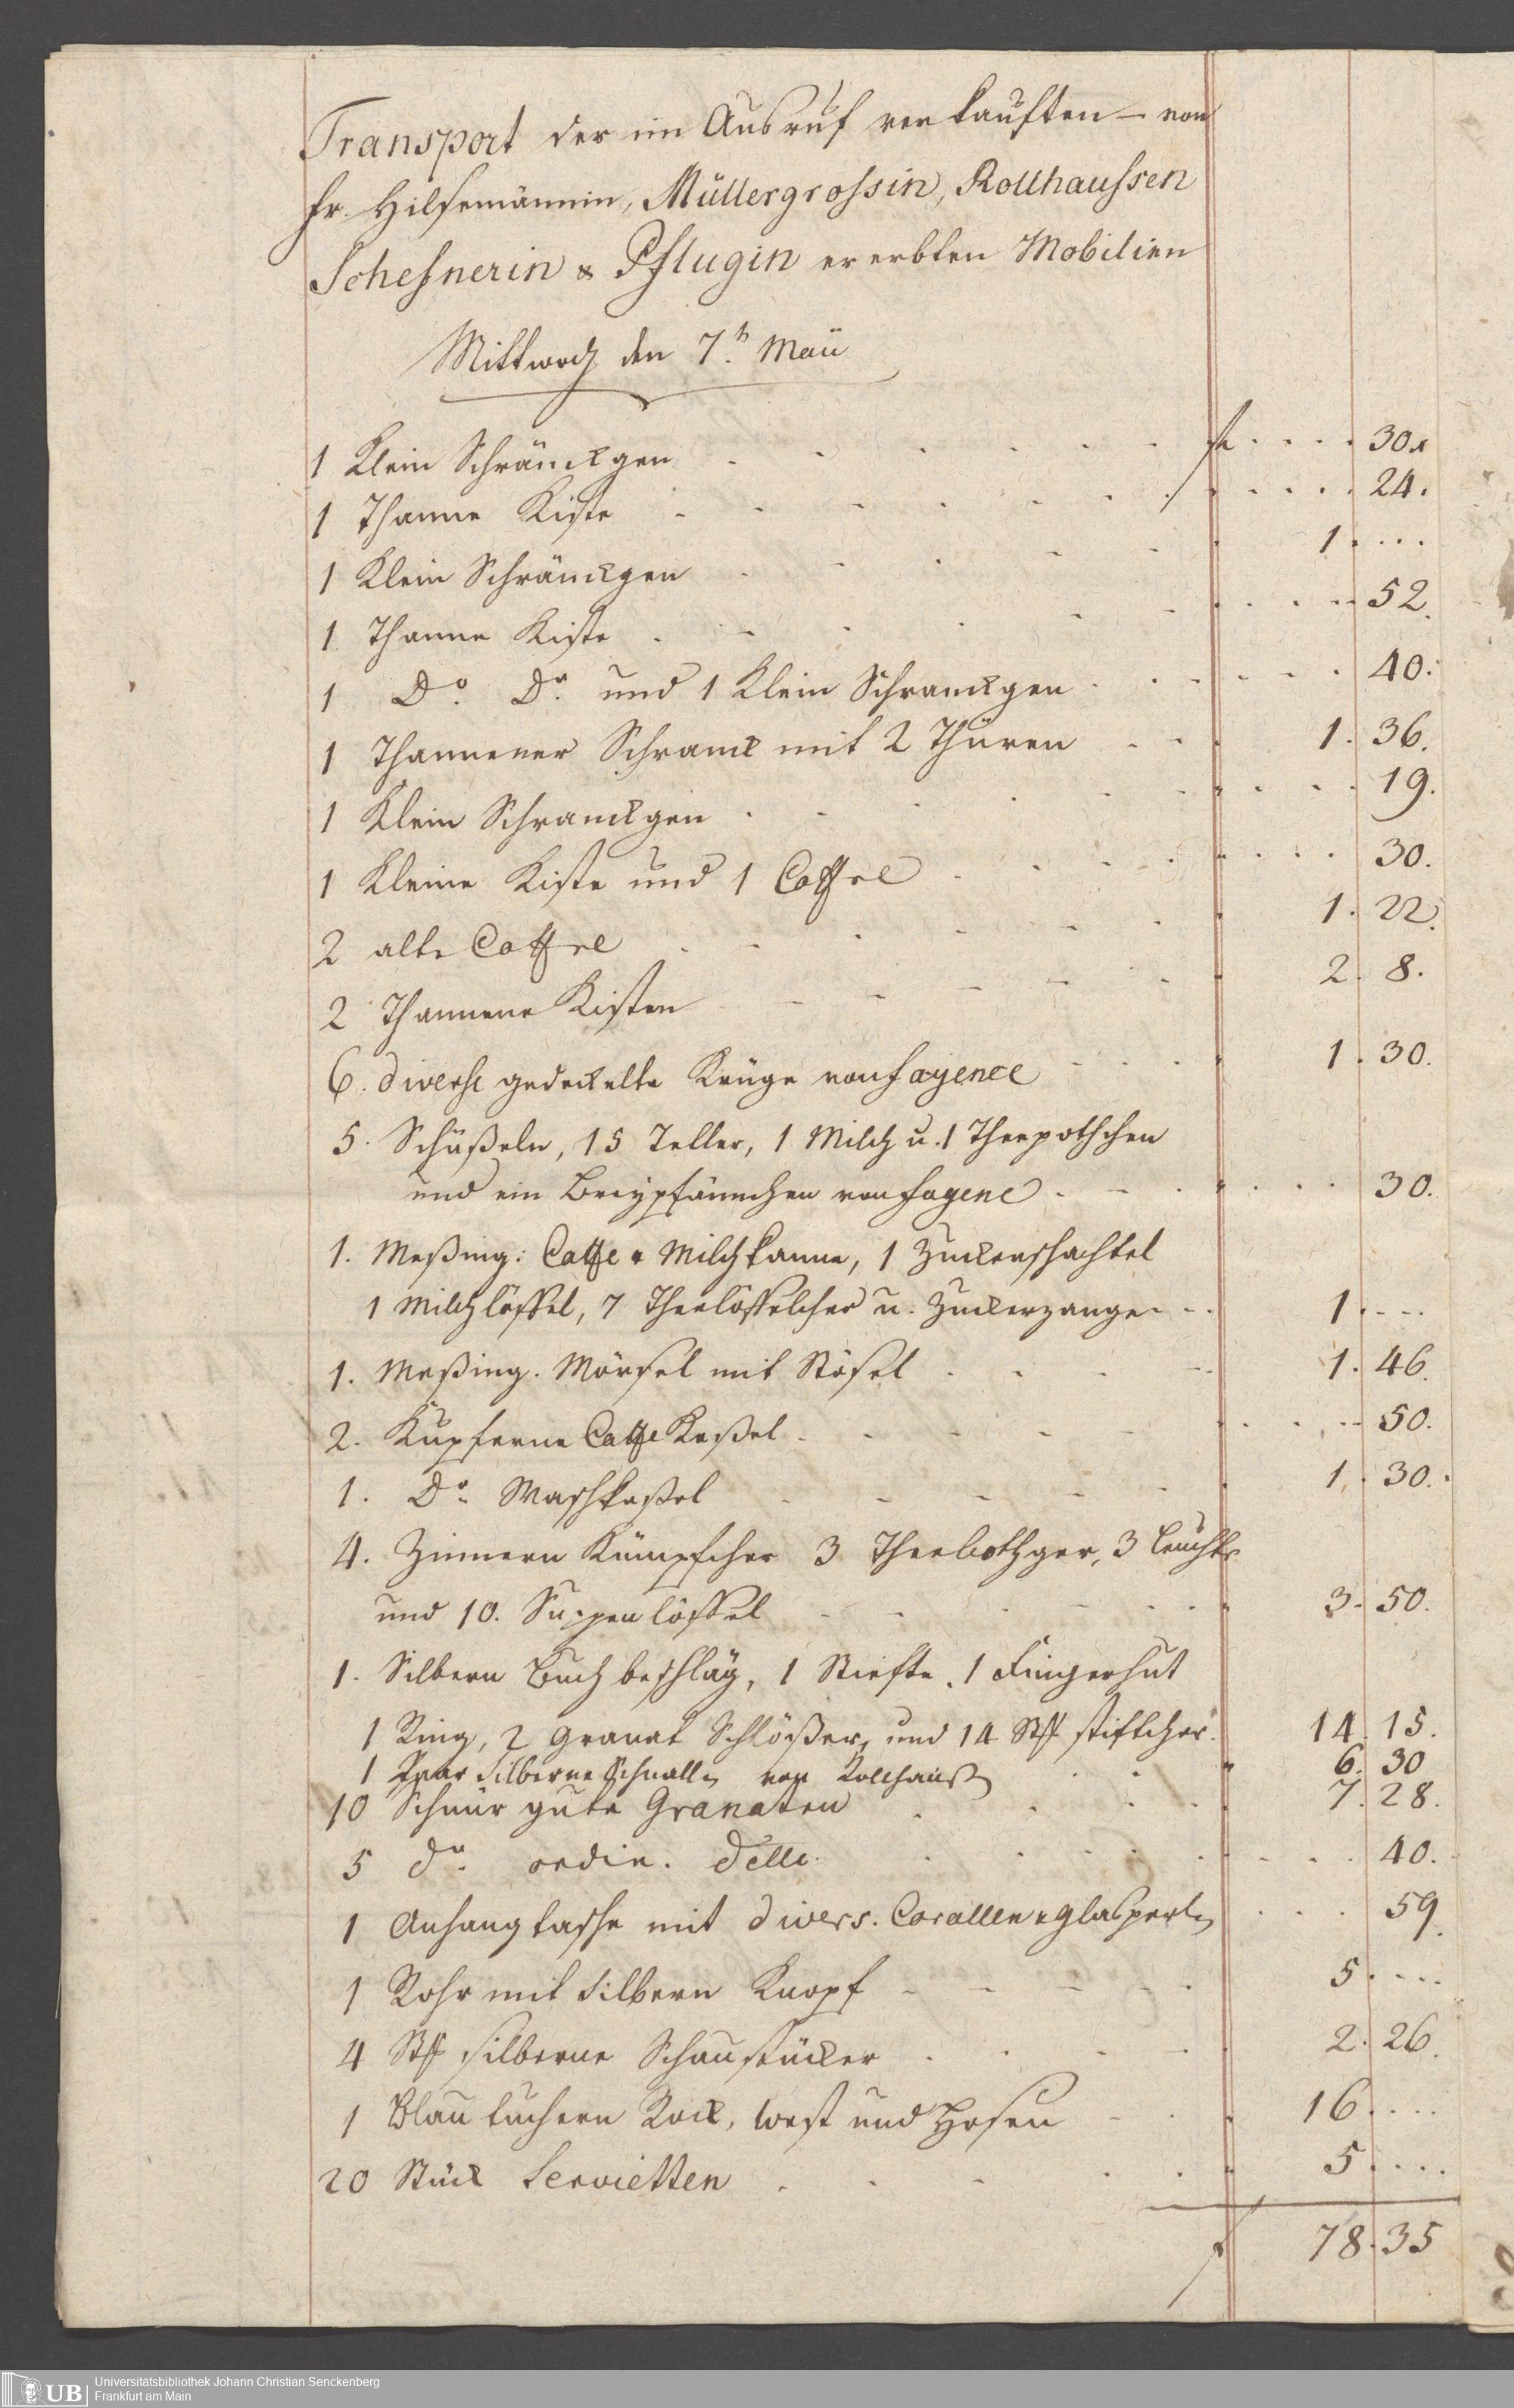 Transport der im Ausruf verkauften – von
Fr. Hilsemännin, Müllergrossin, Rollhaussen
Schesnerin & Pflugin ererbten Mobilien
Mittwoch den 7.n Maii
1 Klein Schränckgen f 30 x
1 Thanne Kiste 24.
1 Klein Schränckgen 1. ...
1 Thanne Kiste 52.
1 Do. Do. und 1 Klein Schranckgen 40.
1 Thannener Schranck mit 2 Thüren 1. 36.
1 Klein Schranckgen 19.
1 Kleine Kiste und 1 Coffre 30.
2 alte Coffre 1. 22.
2 Thannene Kisten 2. 8.
6. diverse gedeckelte Krüge von fayence 1. 30.
5. Schüßeln, 15 Teller, 1 Milch u. 1 Theepothchen
und ein Breypfännchen von fayence 30.
1. Meßing: Caffe & Milchkanne, 1 Zuckerschachtel
1 Milchlöffel, 7 Theelöffelcher u. Zuckerzange 1. ...
1. Meßing. Mörsel mit Stösel 1. 46.
2. Kupferne Caffe Keßel 50.
1. Do. Waschkeßel 1. 30.
4. Zinnern Kümpfcher 3 Theebothger, 3 Leuchter
und 10. Suppenlöffel 3. 50.
1. Silbern Buch beschläg, 1 Stiefte, 1 Fingerhut
1 Ring, 2 Granat Schlößer, und 14 Stk stiftcher 14. 15.
1 Paar Silberne Schnallen von Rollhauß 6. 30
10 Schnür gute Granaten 7. 28.
5 do. ordin. Detto. 40.
1 Anhangtasche mit divers. Corallen & Glasperlen 59.
1 Rohr mit Silbern Knopf 5. ...
4 Stk silberne Schaustücker 2. 26.
1 Blau tuchern Rock, West und Hosen 16. ...
20 Stück Servietten 5. ...
f 78. 35
UB Universitätsbibliothek Johann Christian Senckenberg
Frankfurt am Main